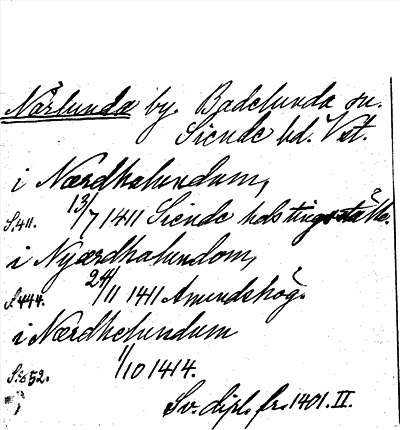 Närlunda by. Badelunda sn.
Siende hd. Vst.
i Nærdhalundum,
S. 411. 13/7 1411 Siende hds tingsställe.
i Nyærdhalundom,
S. 444. 24/11 1411 Amundshög.
i Nærdhelundum
1/10 1414.
Sv. dipl. fr. 1401. II.